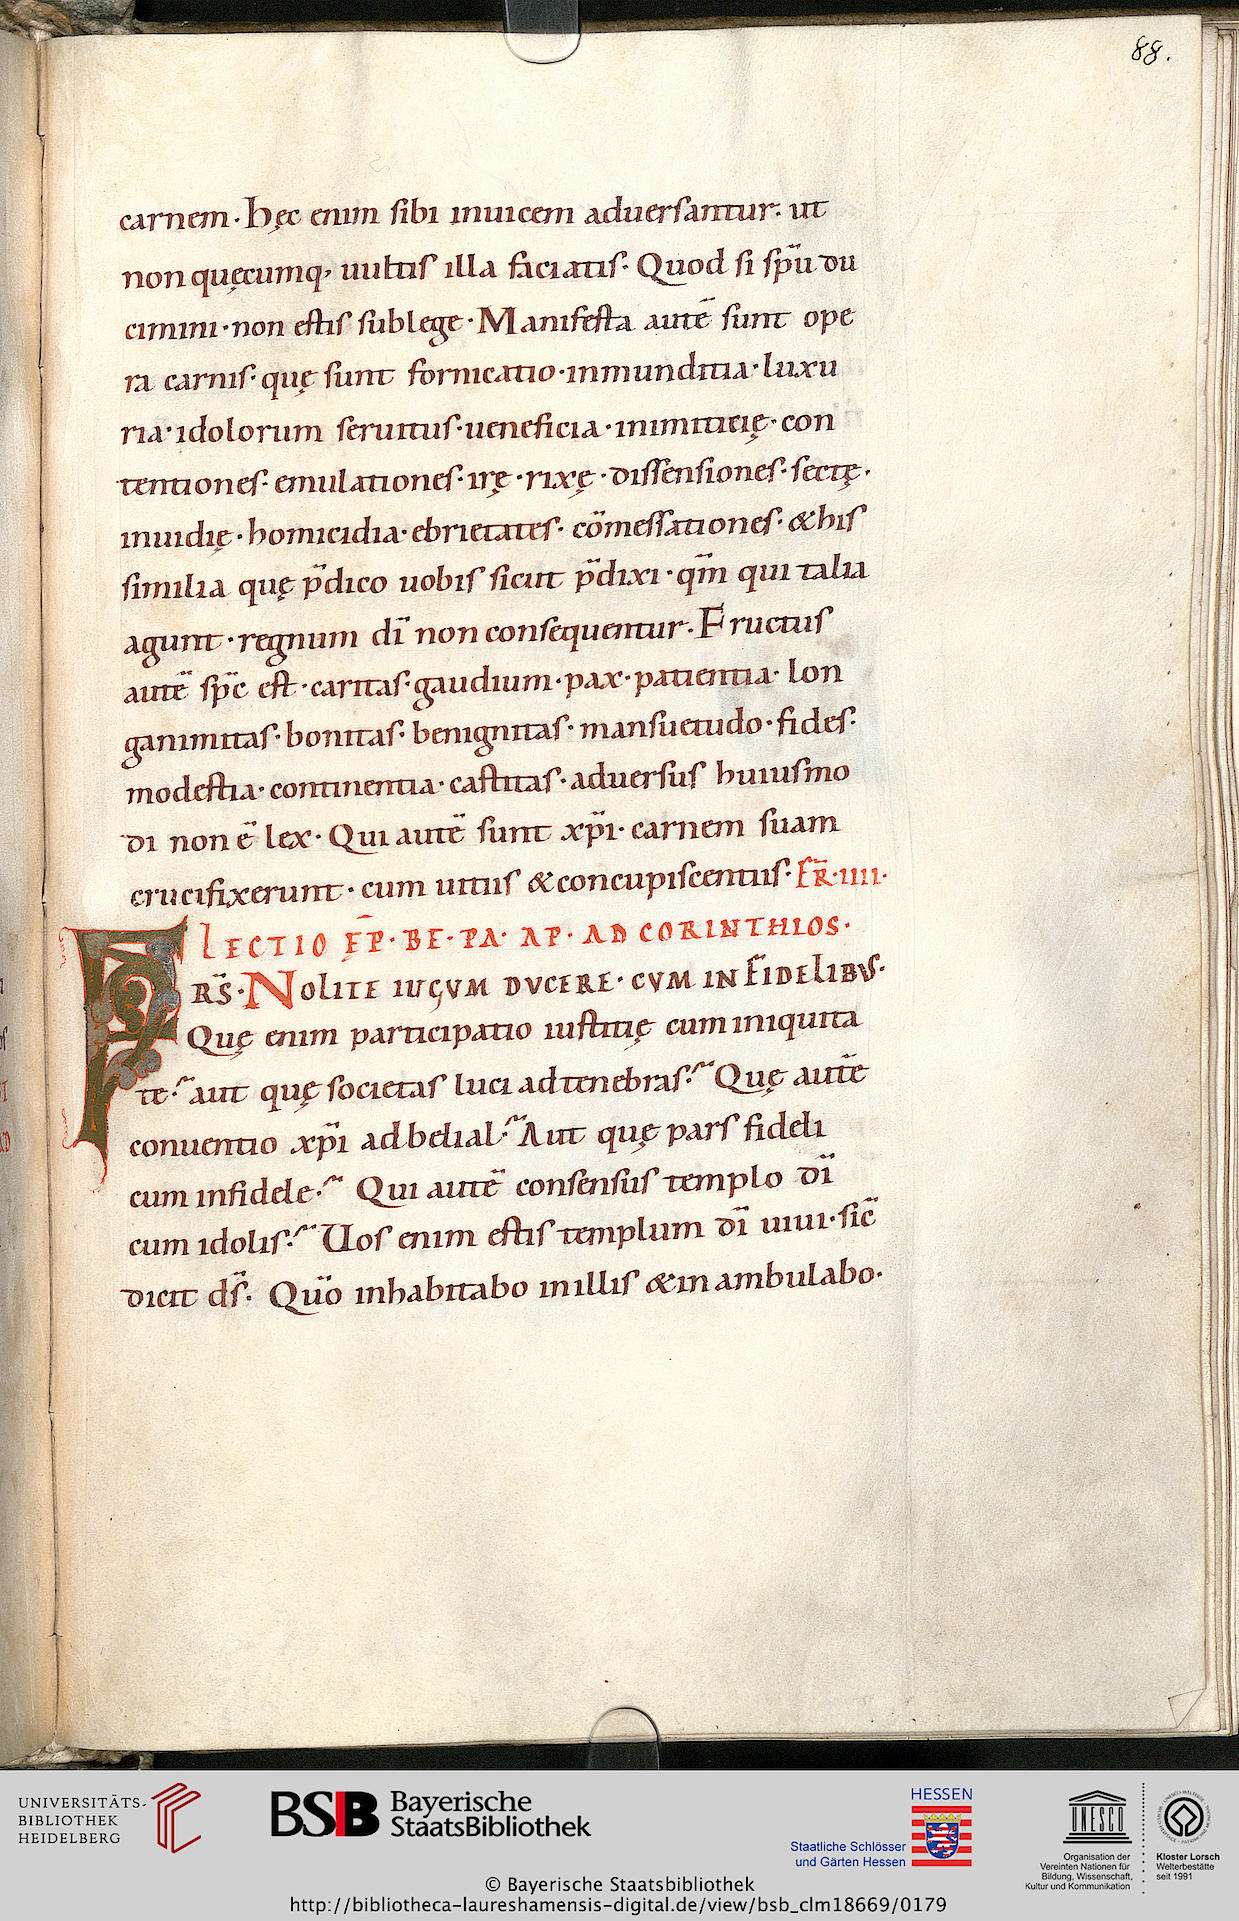 88.
carnem · hęc enim sibi inuicem aduersantur · ut
non quęcumq; uultis illa faciatis · Quod si sp̄u du
cimini · non estis sub lege · Manifesta autē sunt ope
ra carnis · quę sunt fornicatio · inmunditia · luxu
ria · idolorum seruitus · ueneficia · inimiticię · con
tentiones · emulationes · irę · rixę · dissensiones · sectę ·
inuidię · homicidia · ebrietates · cōmessationes · & his
similia quę p̄dico uobis sicut p̄dixi · qm̄ qui talia
agunt · regnum dī non consequentur · Fructus
autē sp̄c est · caritas · gaudium · pax · patientia · lon
ganimitas · bonitas · benignitas · mansuetudo · fides ·
modestia · continentia · castitas · aduersus huiusmo
di non ē lex · Qui autē sunt xp̄i · carnem suam
crucifixerunt · cum uitiis & concupiscentiis · FR̄ · IIII ·
LECTIO EP̄ · BE · PA · AP · AD CORINTHIOS ·
FRS̄ · NOLITE IUGVM DVCERE · CVM INFIDELIBVS ·
Quę enim participatio iustitię cum iniquita
te · aut quę societas luci ad tenebras · Quę autē
conuentio xp̄i ad belial · Aut quę pars fideli
cum infidele · Qui autē consensus templo dī
cum idolis · Uos enim estis templum dī uiui · sic̄
dicit ds̄ · Quō inhabitabo in illis & inambulabo ·
UNIVERSITÄTS-
BIBLIOTHEK
HEIDELBERG
BSB Bayerische
StaatsBibliothek
HESSEN
Staatliche Schlösser
und Gärten Hessen
UNESCO
Organisation der
Vereinten Nationen für
Bildung, Wissenschaft,
Kultur und Kommunikation
Kloster Lorsch
Welterbestätte
seit 1991
© Bayerische Staatsbibliothek
http://bibliotheca-laureshamensis-digital.de/view/bsb_clm18669/0179